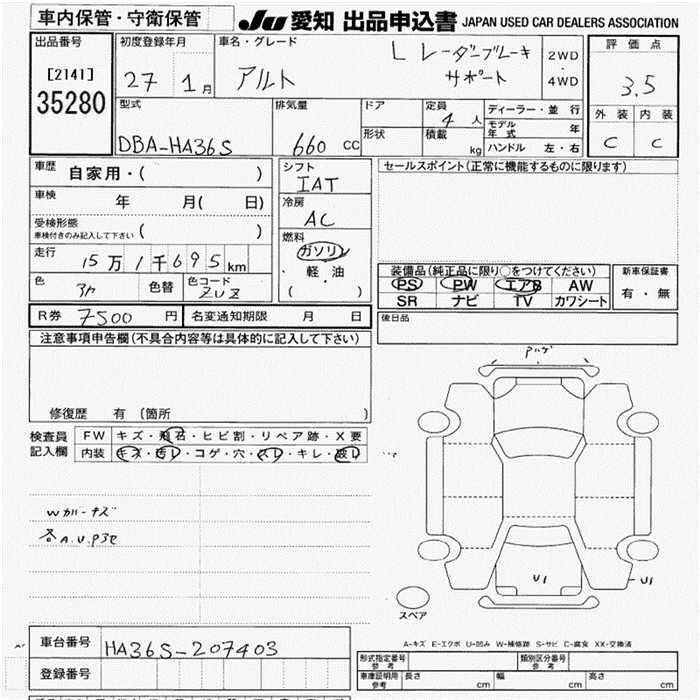 車内保管・守衛保管
JU 愛知 出品申込書 JAPAN USED CAR DEALERS ASSOCIATION
出品番号 初度登録年月 車名・グレード 評価点
[2141] 27 1月 アルト L レーダーブレーキ 2WD
35280 サポート ・ 4WD 3.5
型式 排気量 ドア 定員 4人 ディーラー・並行 外装 内装
DBA-HA36S 660 CC 形状 積載 kg モデル年式 年 C C
ハンドル 左・右
車歴 自家用・( ) シフト セールスポイント(正常に機能するものに限ります)
IAT
車検 年 月( 日) 冷房
AC
受検形態
車検付きのみ記入して下さい ( ) 燃料
ガソリン
走行 15万1千695km ・軽油
( )
装備品(純正品に限り○をつけてください) 新車保証書
色 色替 色コード PS PW エアB AW 有・無
ZUZ SR ナビ TV カワシート
R券 7500 円 名変通知期限 月 日 後日品
注意事項申告欄(不具合内容等は具体的に記入して下さい)
修復歴 有 (箇所 )
検査員 FW キズ・飛石・ヒビ割・リペア跡・X要
記入欄 内装 キズ・汚レ・コゲ・穴・スレ・キレ・破レ
Wカリーキズ
各A.U.P3E
U1 U1
スペア
A-キズ E-エクボ U-凹み W-補修跡 S-サビ C-腐食 XX-交換済
車台番号 HA36S-207403
登録番号
形式指定番号 参考 類別区分番号 参考
車庫証明用 参考 長さ cm 幅 cm 高さ cm